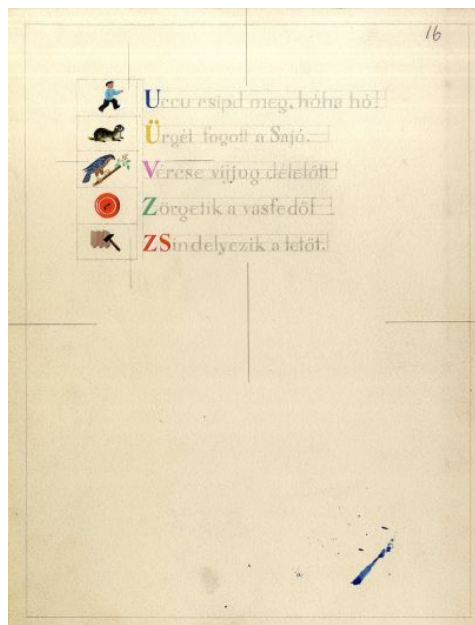 16
Uccu csípd meg, hóha hó!
Ürgét fogott a Sajó.
Vércse víjjog délelőtt
Zörgetik a vasfedőt
ZSindelyezik a tetőt.